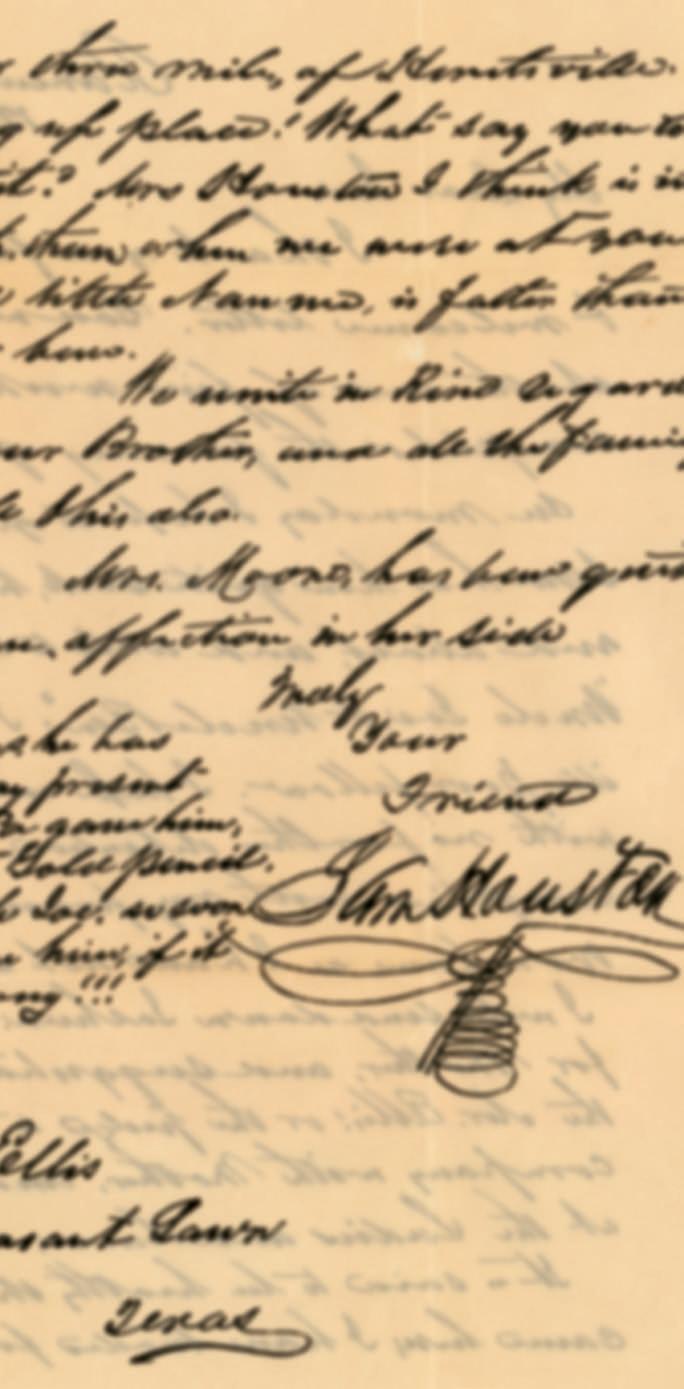 three miles, of Huntsville.
up place! What say you to
it? Mrs Houston I think is in
when we were at your
little Nannie, is fatter than
here.
We unite in Kind regards
Brother, and all the family
this also.
Mrs. Moore, has been quite
affection in her side
Truly
Your
Friend
Sam Houston
he has
my present
Pa gave him,
Gold pencil.
Joe. so soon
him, if it
!!!
Ellis
Lawn
Texas